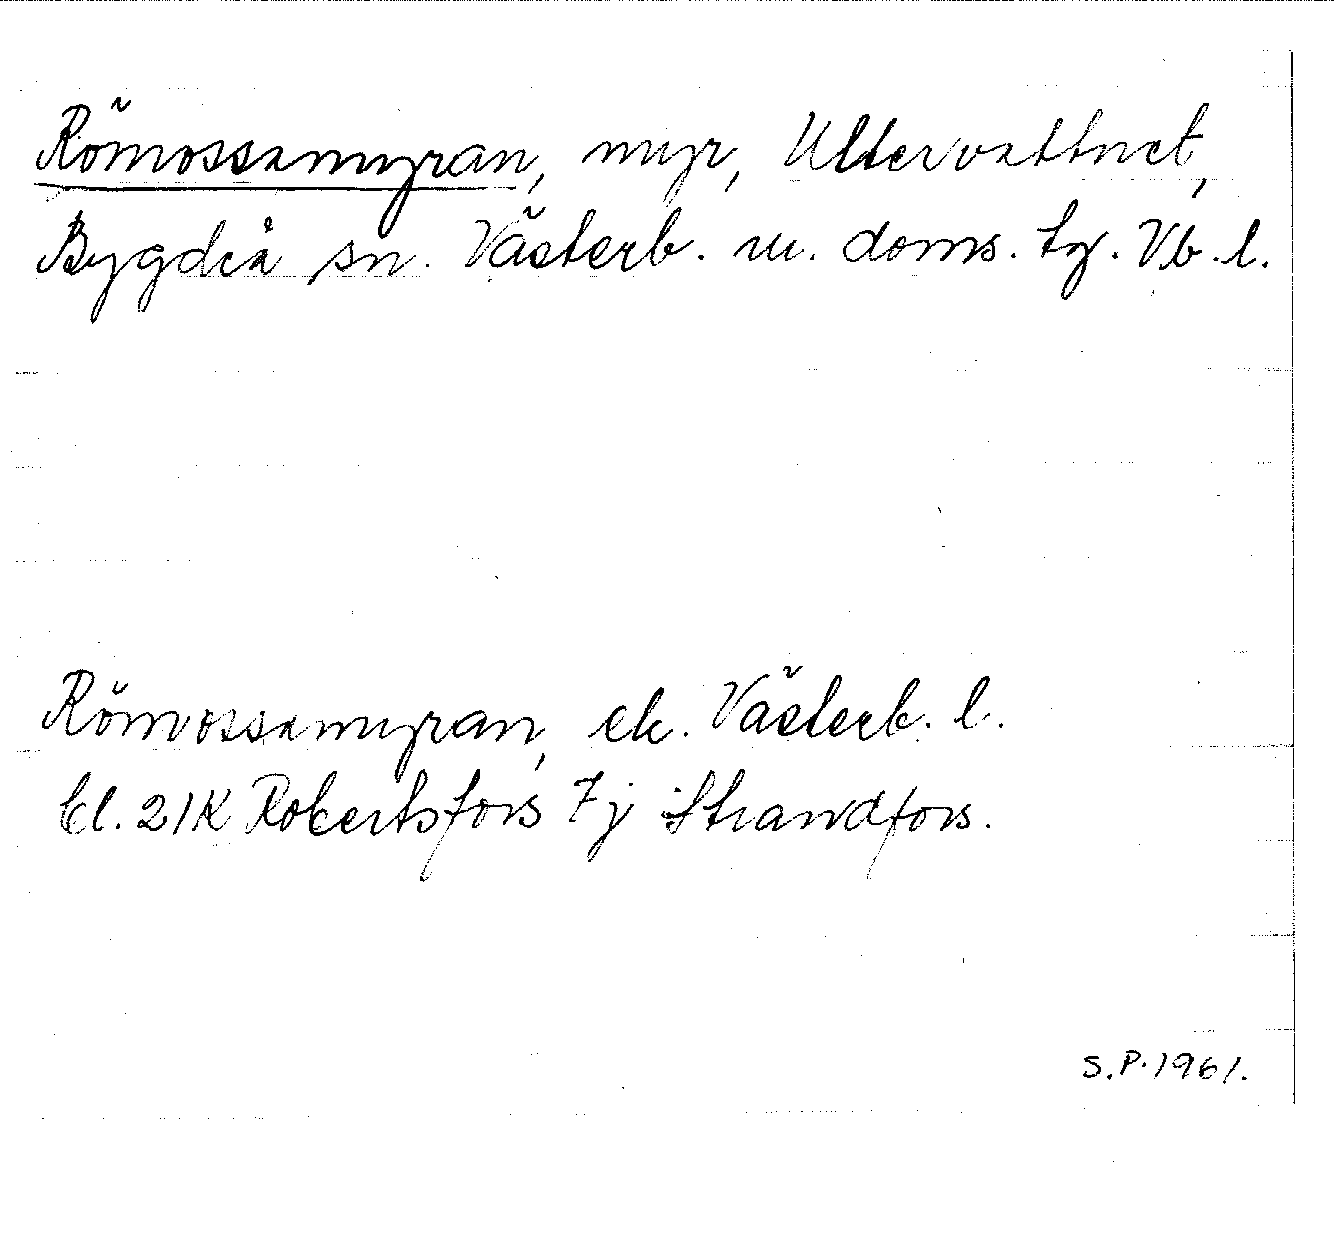 Römossamyran, myr, Ultervattnet,
Bygdeå sn. Västerb. m. doms. tg. Vb. l.
Römossamyran, ek. Västerb. l.
bl. 21K Robertsfors 7j Strandfors.
S.P. 1961.